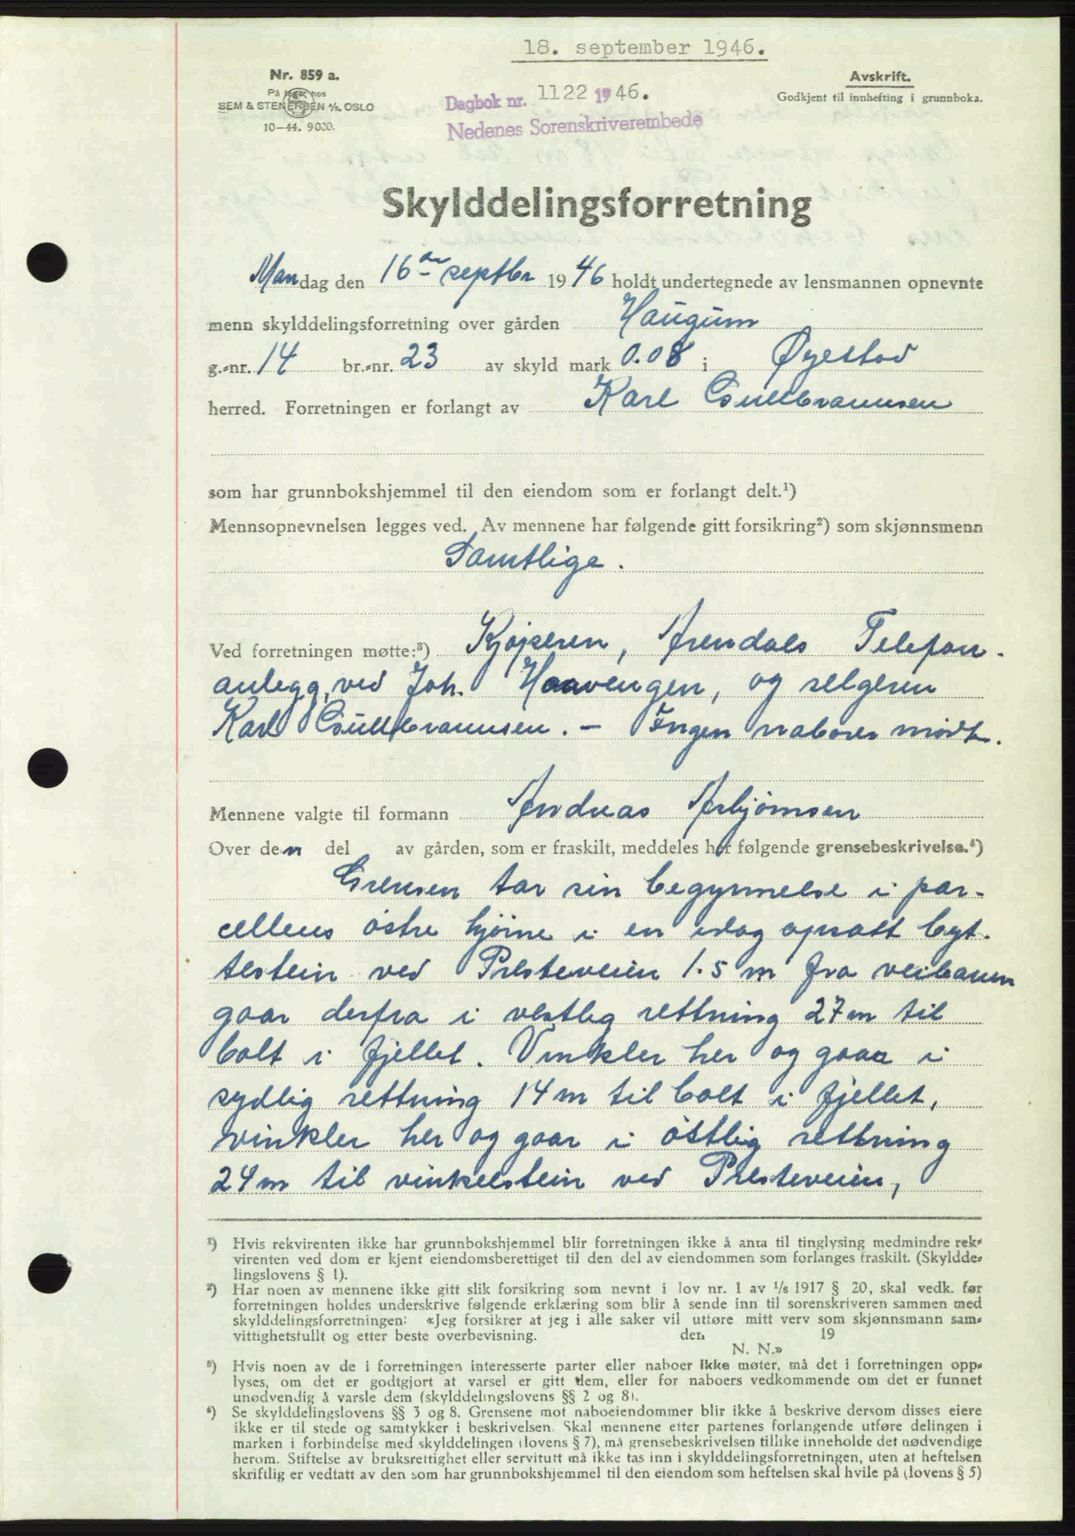 18. september 1946.
Nr. 859 a.
På lager hos
SEM & STENERSEN A/S, OSLO
10-44. 9000.
Dagbok nr. 1122 1946.
Nedenes Sorenskriverembede
Avskrift.
Godkjent til innhefting i grunnboka.
Skylddelingsforretning
Mandag den 16de septbr 1946 holdt undertegnede av lensmannen opnevnte
menn skylddelingsforretning over gården Haugum
g.-nr. 14 br.-nr. 23 av skyld mark 0.08 i Øyestad
herred. Forretningen er forlangt av Karl Gullbrannsen
som har grunnbokshjemmel til den eiendom som er forlangt delt.¹)
Mennsopnevnelsen legges ved. Av mennene har følgende gitt forsikring²) som skjønnsmenn
Samtlige.
Ved forretningen møtte:³) Kjøperen, Arendals Telefon-
anlegg, ved Joh. Haavengen, og selgeren
Karl Gullbrannsen. – Ingen naboer mødt.
Mennene valgte til formann Andreas Asbjörnsen
Over den del av gården, som er fraskilt, meddeles her følgende grensebeskrivelse.⁴)
Grensen tar sin begynnelse i par-
cellens östre hjörne i en idag opsatt byt-
testein ved Presteveien 1.5 m fra veibanen
gaar derfra i vestlig rettning 27 m til
bolt i fjellet. Vinkler her og gaar i
sydlig rettning 14 m til bolt i fjellet,
vinkler her og gaar i östlig rettning
24 m til vinkelstein ved Presteveien,
¹) Hvis rekvirenten ikke har grunnbokshjemmel blir forretningen ikke å anta til tinglysing medmindre rek-
virenten ved dom er kjent eiendomsberettiget til den del av eiendommen som forlanges fraskilt. (Skyldde-
lingslovens § 1).
²) Har noen av mennene ikke gitt slik forsikring som nevnt i lov nr. 1 av 1/6 1917 § 20, skal vedk. før
forretningen holdes underskrive følgende erklæring som blir å sende inn til sorenskriveren sammen med
skylddelingsforretningen: «Jeg forsikrer at jeg i alle saker vil utføre mitt verv som skjønnsmann sam-
vittighetsfullt og etter beste overbevisning. den 19
N. N.»
³) Hvis noen av de i forretningen interesserte parter eller naboer ikke møter, må det i forretningen opp-
lyses, om det er godtgjort at varsel er gitt dem, eller for naboers vedkommende om det er funnet
unødvendig å varsle dem (skylddelingslovens §§ 2 og 8).
⁴) Se skylddelingslovens §§ 3 og 8. Grensene mot naboeiendommer blir ikke å beskrive dersom disses eiere
ikke er til stede og samtykker i beskrivelsen. Skal mennene etter partenes forlangende utføre delingen i
marken i forbindelse med skylddelingen (lovens § 7), må grensebeskrivelsen tillike inneholde det nødvendige
herom. Stiftelse av bruksrettighet eller servitutt må ikke tas inn i skylddelingsforretningen, uten at heftelsen
skriftlig er vedtatt av den som har grunnbokshjemmel til den eiendom som heftelsen skal hvile på (lovens § 5)